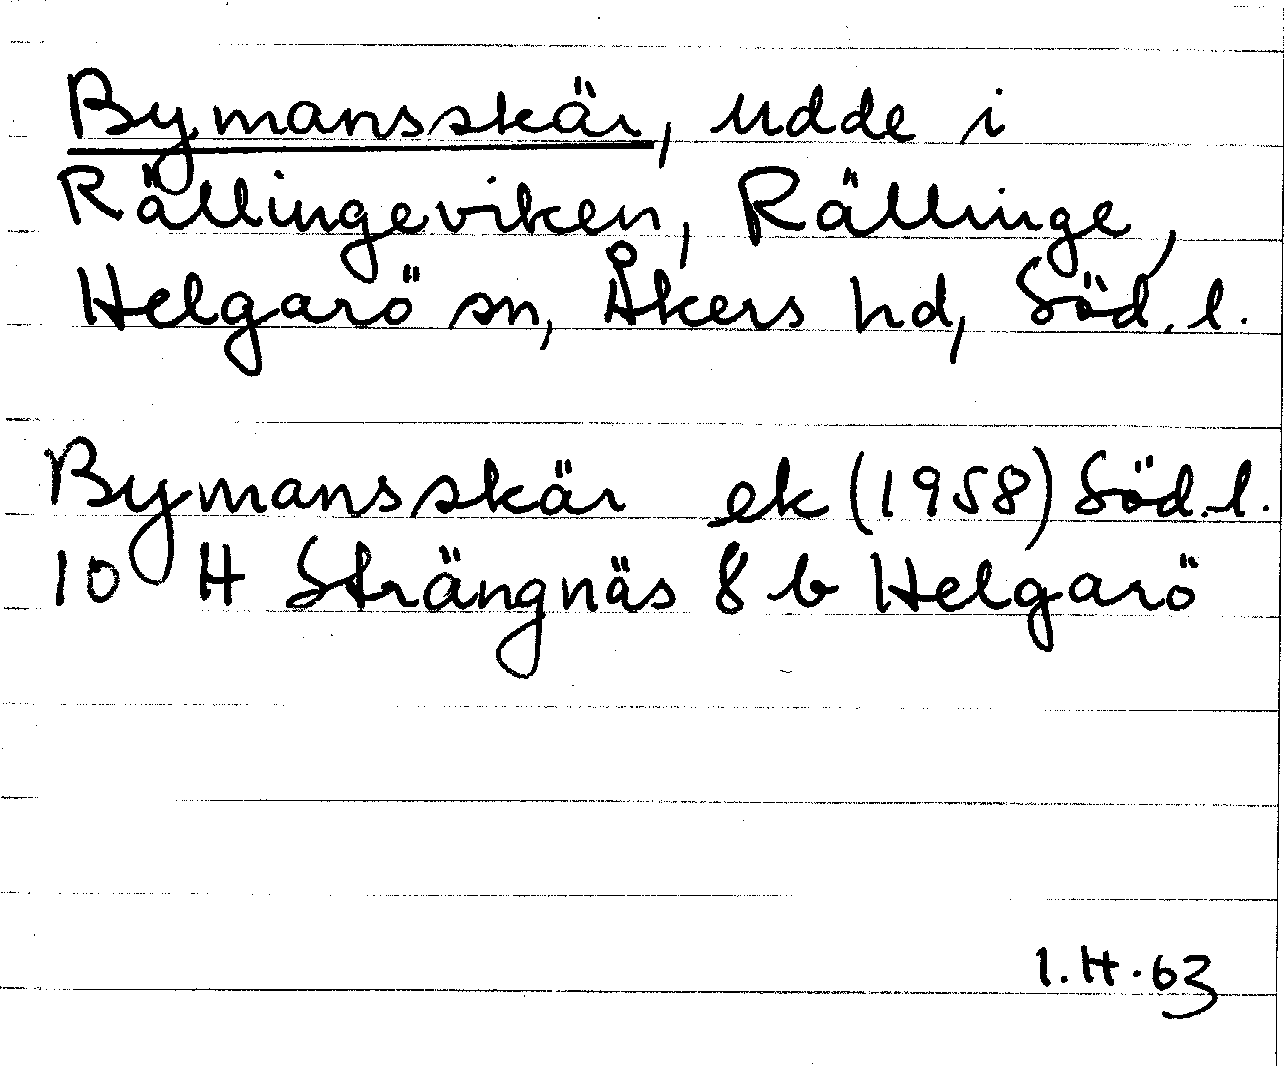 Bymansskär, udde i
Rällingeviken, Rällinge,
Helgarö sn, Åkers hd, Söd. l.
Bymansskär ek (1958) Söd. l.
10 H Strängnäs 8 b Helgarö
I.H.63